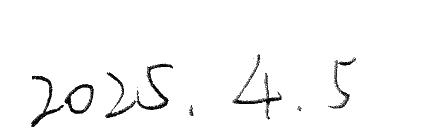 2025. 4. 5